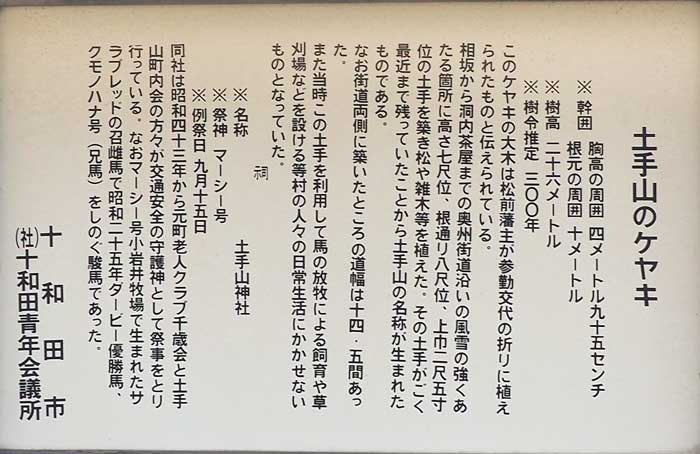 土手山のケヤキ
※ 幹囲 胸高の周囲 四メートル九十五センチ
根元の周囲 十メートル
※ 樹高 二十六メートル
※ 樹令推定 三〇〇年
このケヤキの大木は松前藩主が参勤交代の折りに植え
られたものと伝えられている。
相坂から洞内茶屋までの奥州街道沿いの風雪の強くあ
たる箇所に高さ七尺位、根通り八尺位、上巾二尺五寸
位の土手を築き松や雑木等を植えた。その土手がごく
最近まで残っていたことから土手山の名称が生まれた
ものである。
なお街道両側に築いたところの道幅は十四・五間あっ
た。
また当時この土手を利用して馬の放牧による飼育や草
刈場などを設ける等村の人々の日常生活にかかせない
ものとなっていた。
祠
※ 名称 土手山神社
※ 祭神 マーシー号
※ 例祭日 九月十五日
同社は昭和四十三年から元町老人クラブ千歳会と土手
山町内会の方々が交通安全の守護神として祭事をとり
行っている。なおマーシー号小岩井牧場で生まれたサ
ラブレッドの召雌馬で昭和二十五年ダービー優勝馬、
クモノハナ号（兄馬）をしのぐ駿馬であった。
十和田市
(社)十和田青年会議所